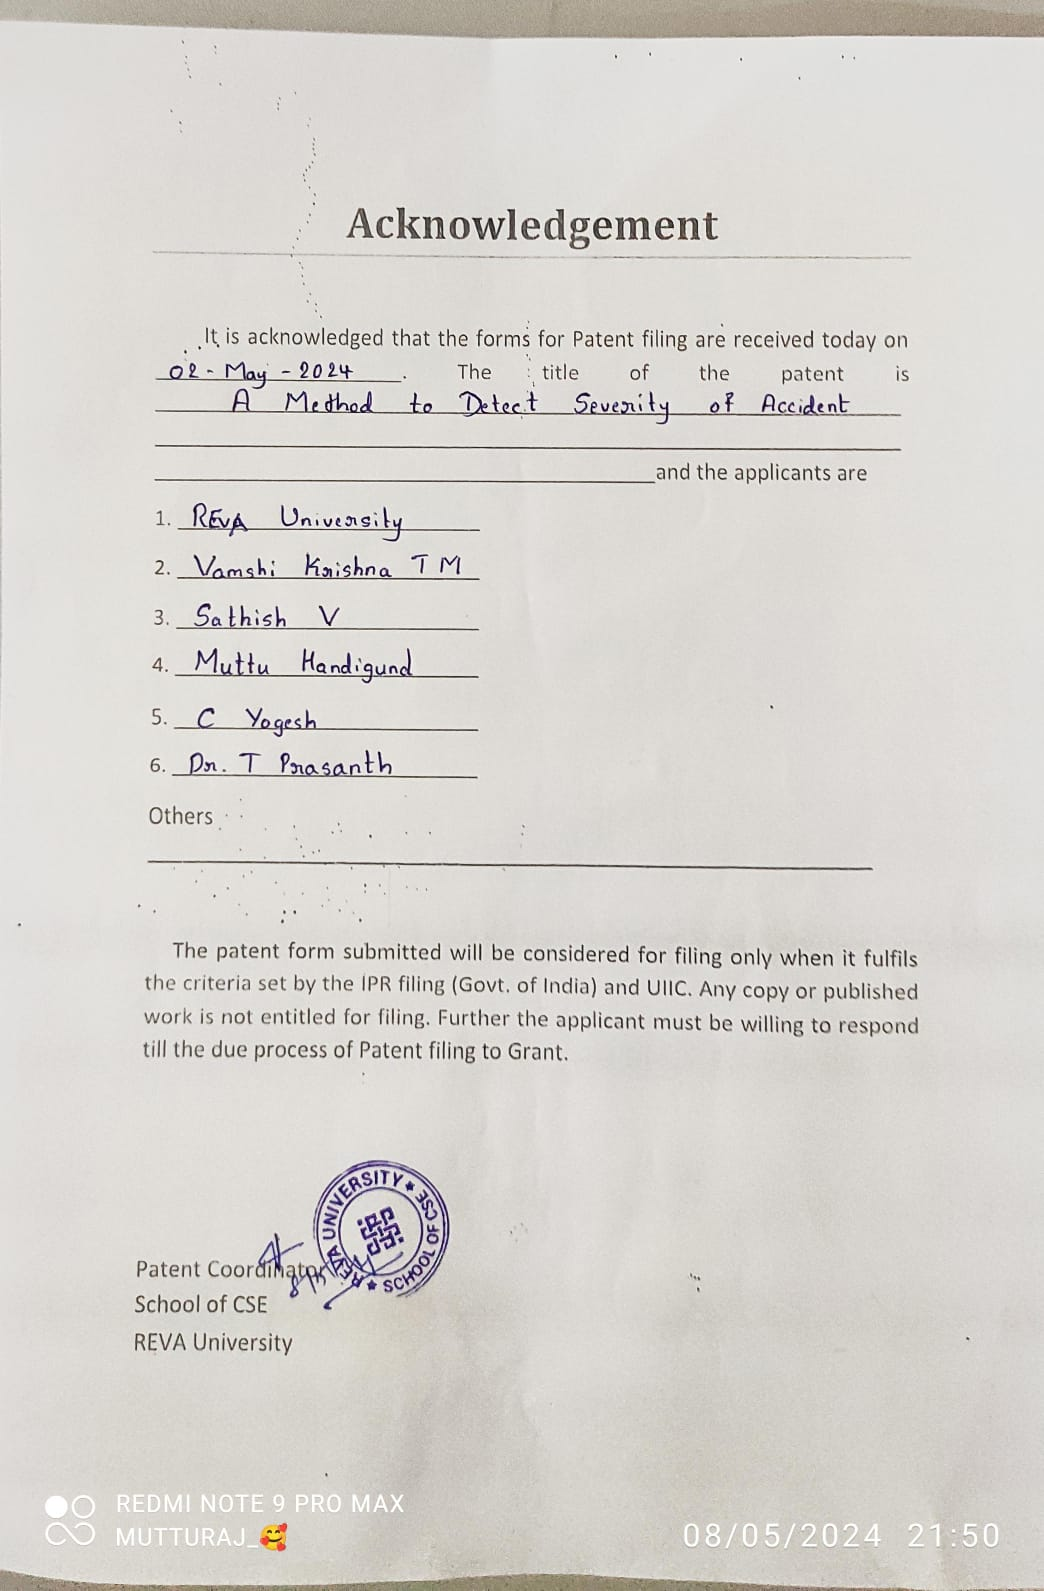 Acknowledgement
It is acknowledged that the forms for Patent filing are received today on
02-May-2024. The title of the patent is
A Method to Detect Severity of Accident
and the applicants are
1. REVA University
2. Vamshi Krishna T M
3. Sathish V
4. Muttu Handigund
5. C Yogesh
6. Dr. T Prasanth
Others
The patent form submitted will be considered for filing only when it fulfils
the criteria set by the IPR filing (Govt. of India) and UIIC. Any copy or published
work is not entitled for filing. Further the applicant must be willing to respond
till the due process of Patent filing to Grant.
REVA UNIVERSITY ★ SCHOOL OF CSE ★
Patent Coordinator
School of CSE
REVA University
REDMI NOTE 9 PRO MAX
MUTTURAJ_🥰
08/05/2024 21:50